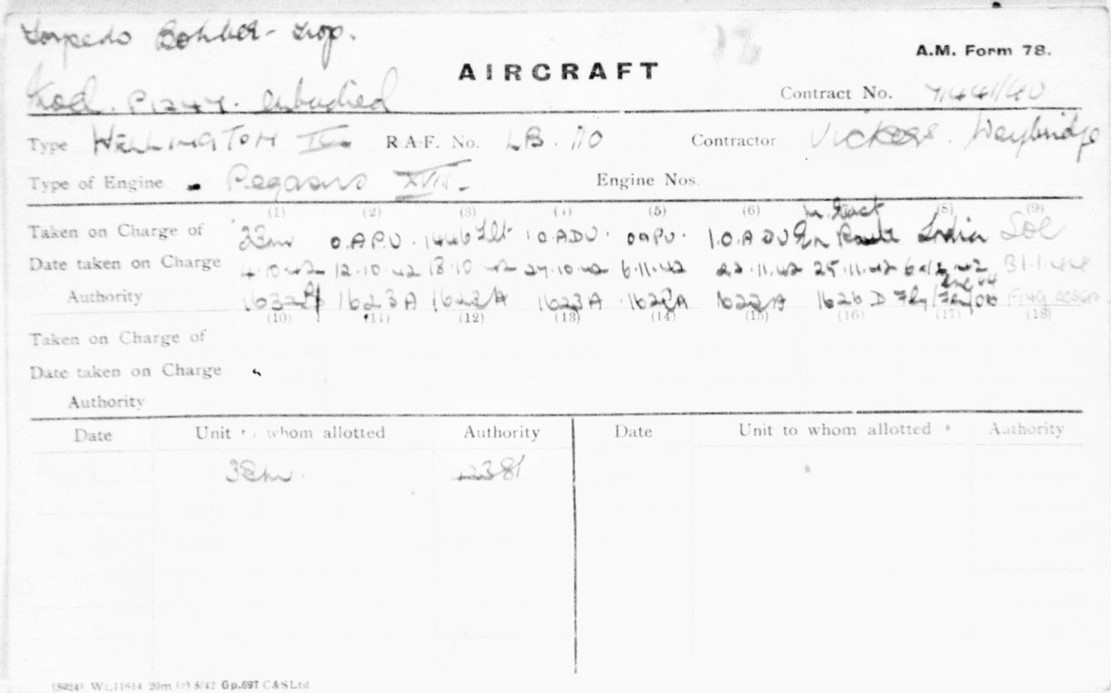 Torpedo Bomber - Trop.
A.M. Form 78.
AIRCRAFT
Mod. embodied
Contract No. 7144/40
Type WELLINGTON IC. R.A.F. No. LB. 110 Contractor Vickers. Weybridge
Type of Engine Pegasus XVIII. Engine Nos.
(1) (2) (3) (4) (5) (6) (8) (9)
M. East
Taken on Charge of O.A.P.U. 1446 Flt 1 O.ADU. OAPU. 1.O.A.D.U En Route India SOC
Date taken on Charge 4.10.42 12.10.42 18.10.42 27.10.42 6.11.42 22.11.42 25.11.42 31.1.44
Authority 1623A 1623A 1623A 1623A 1623A 1626 D
(10) (11) (12) (13) (14) (15) (16) (17) (18)
Taken on Charge of
Date taken on Charge
Authority
Date Unit to whom allotted Authority Date Unit to whom allotted Authority
2381
(8424) Wt.11814 20m 8/42 Gp.697 C&SLtd